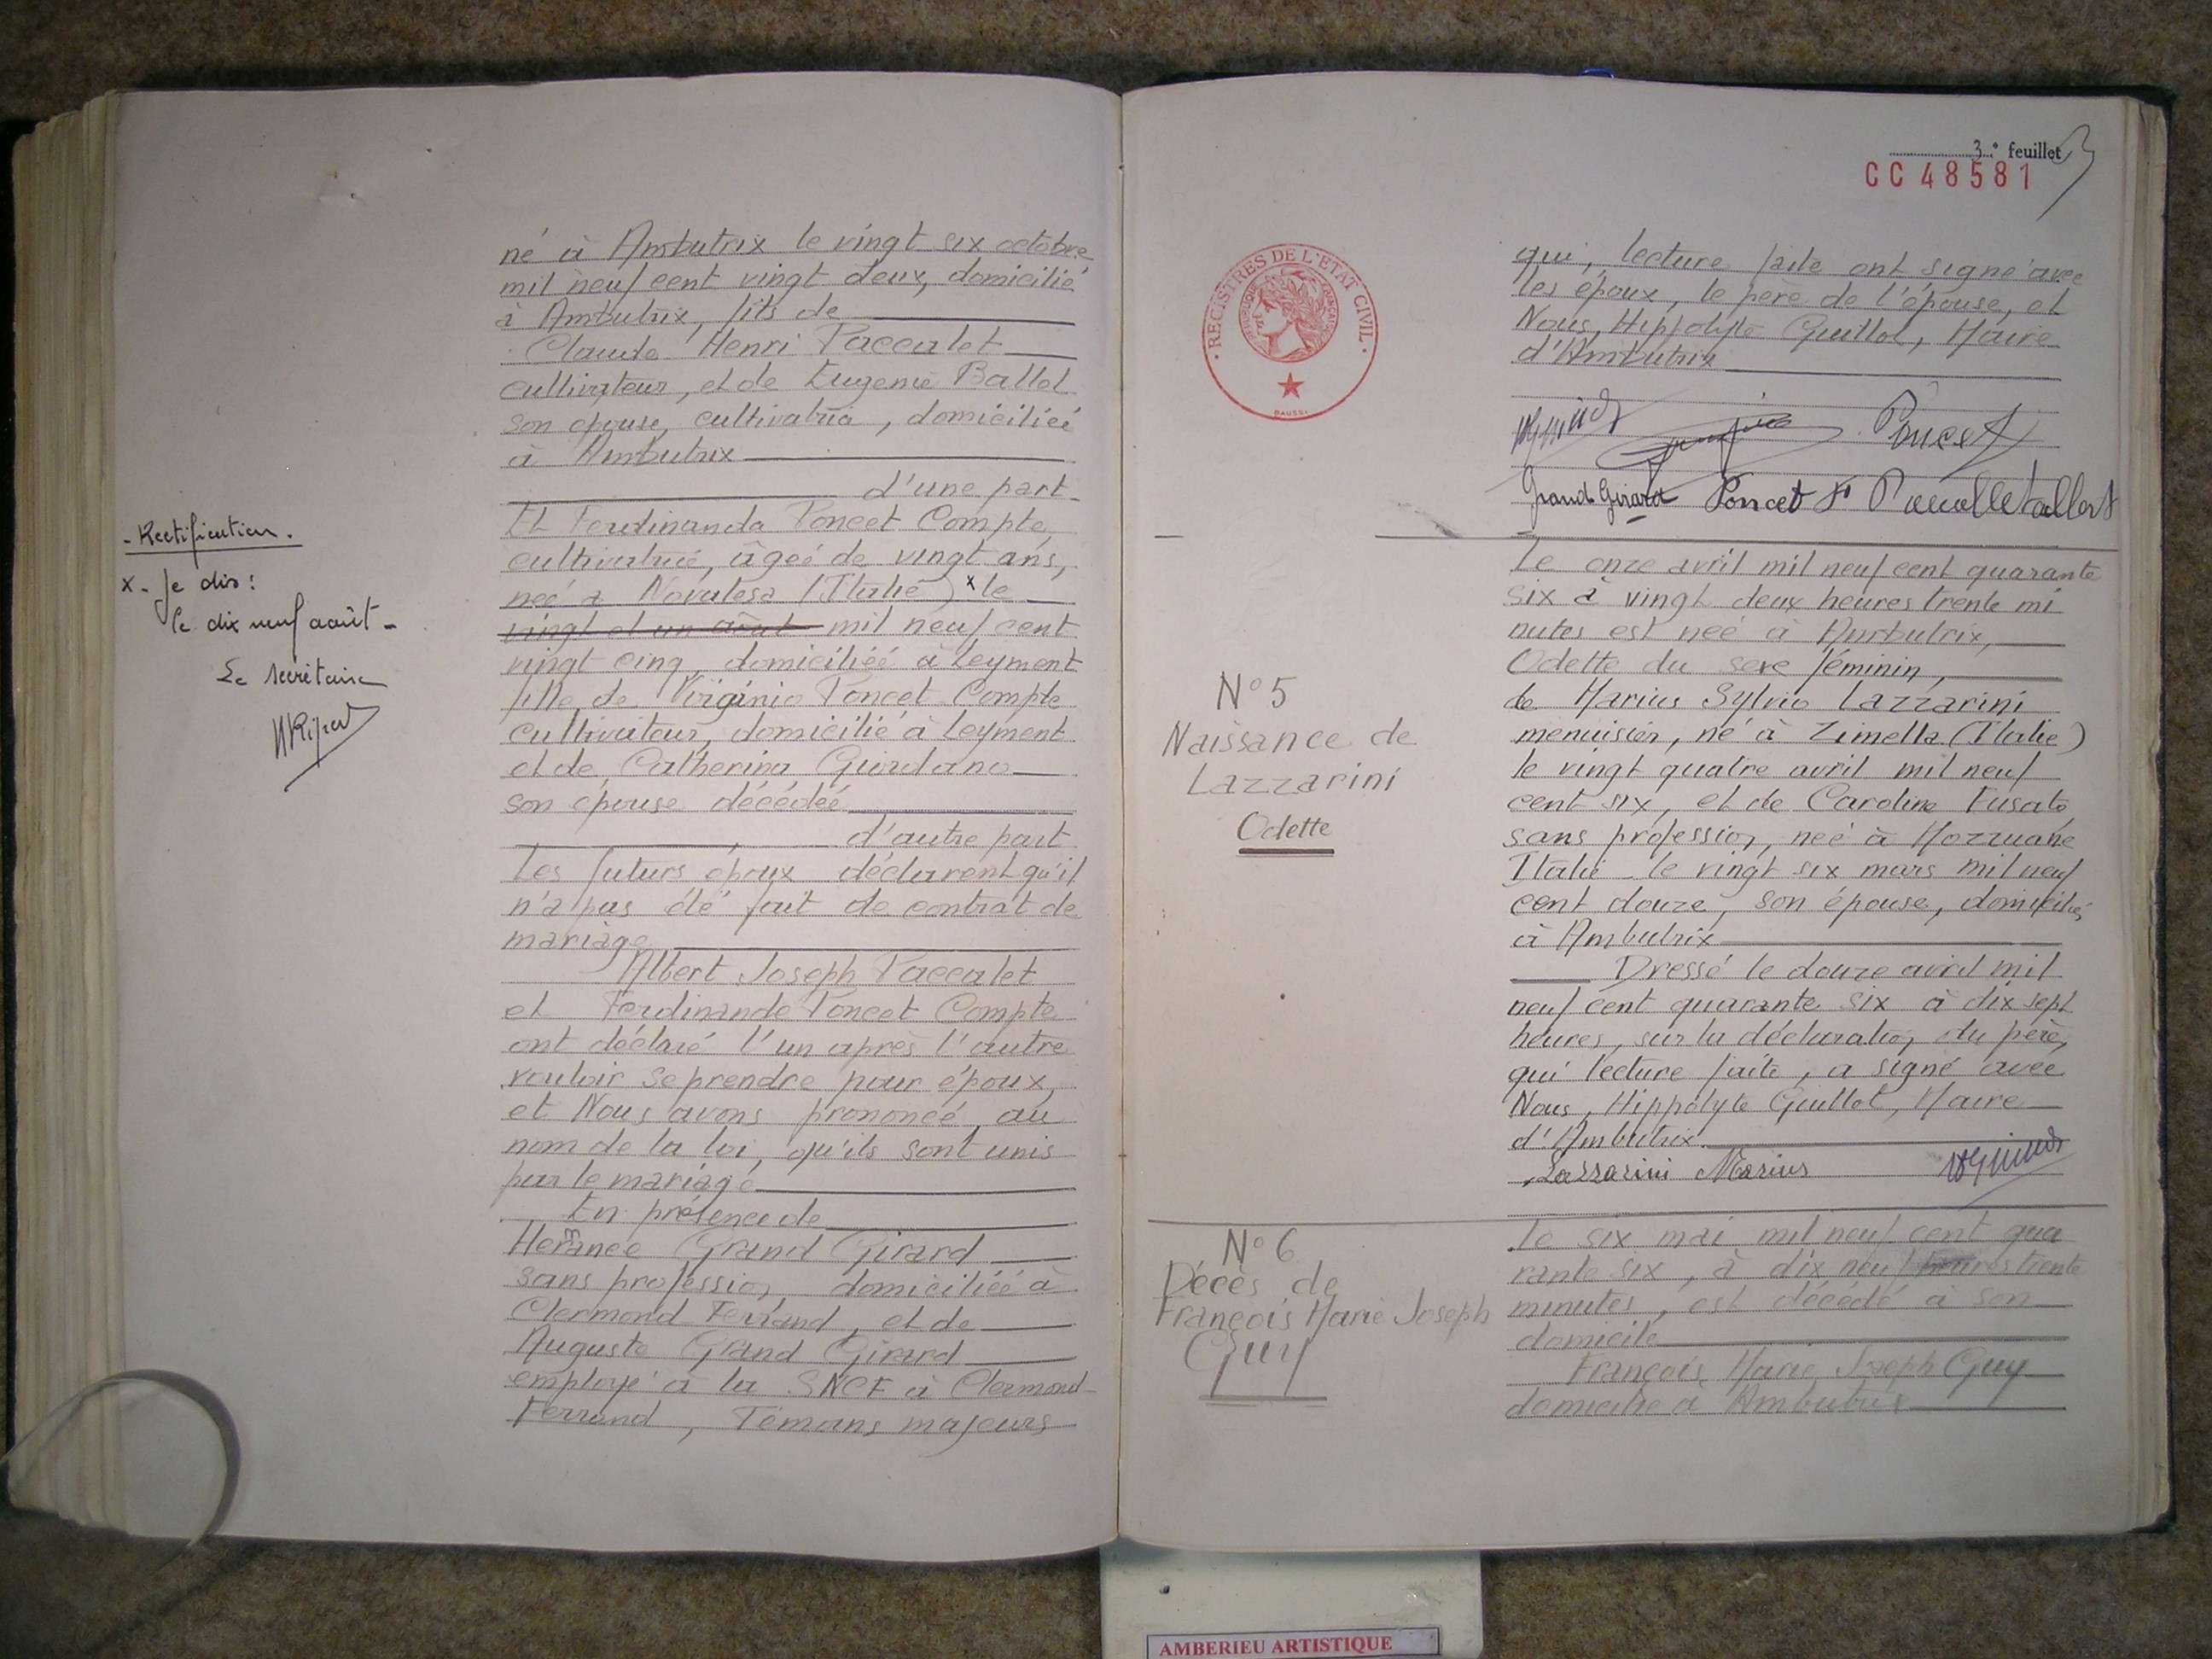 né à Ambutrix le vingt six octobre
mil neuf cent vingt deux, domicilié
à Ambutrix, fils de
Claude Henri Paccalet
cultivateur, et de Eugenie Ballet
son epouse, cultivatrice, domiciliée
à Ambutrix
d'une part
Et Ferdinanda Poncet Compte
cultivatrice, âgée de vingt ans,
née à Novalesa (Italie) x le
vingt et un août mil neuf cent
vingt cinq, domiciliée à Leyment
fille de Virginio Poncet Compte
cultivateur, domicilié à Leyment
et de Catherina Giordano
son épouse décédée
d'autre part
Les futurs époux déclarent qu'il
n'a pas été fait de contrat de
mariage
Albert Joseph Paccalet
et Ferdinande Poncet Compte
ont déclaré l'un après l'autre
vouloir se prendre pour époux,
et Nous avons prononcé, au
nom de la loi, qu'ils sont unis
par le mariage
En présence de
Grand Girard
sans profession, domiciliée à
Clermond Ferrand, et de
Auguste Grand Girard
employé à la SNCF à Clermond
Ferrand, Témoins majeurs
- Rectification.
x - Je dis :
le dix neuf août -
Le secrétaire
3e feuillet
3
CC 48581
REGISTRES DE L'ETAT CIVIL
REPUBLIQUE FRANCAISE
DAUSSI
qui, lecture faite ont signé avec
les époux, le père de l'épouse, et
Nous, Hippolyte Guillot, Maire
d'Ambutrix
Poncet
Grand Girard Poncet F
N° 5
Naissance de
Lazzarini
Odette
Le onze avril mil neuf cent quarante
six à vingt deux heures trente mi
nutes est née à Ambutrix,
Odette du sexe féminin,
de Marius Sylvio Lazzarini
menuisier, né à Zimella (Italie)
le vingt quatre avril mil neuf
cent six, et de Caroline Fusato
sans profession, née à
Italie le vingt six mars mil neuf
cent douze, son épouse, domiciliés
à Ambutrix
Dressé le douze avril mil
neuf cent quarante six à dix sept
heures, sur la déclaration du père,
qui lecture faite, a signé avec
Nous, Hippolyte Guillot, Maire
d'Ambutrix
Lazzarini Marius
N° 6
Décès de
François Marie Joseph
Guy
Le six mai mil neuf cent qua
rante six, à dix neuf heures trente
minutes, est décédé à son
domicile
François Marie Joseph Guy
domicilié à Ambutrix
AMBERIEU ARTISTIQUE